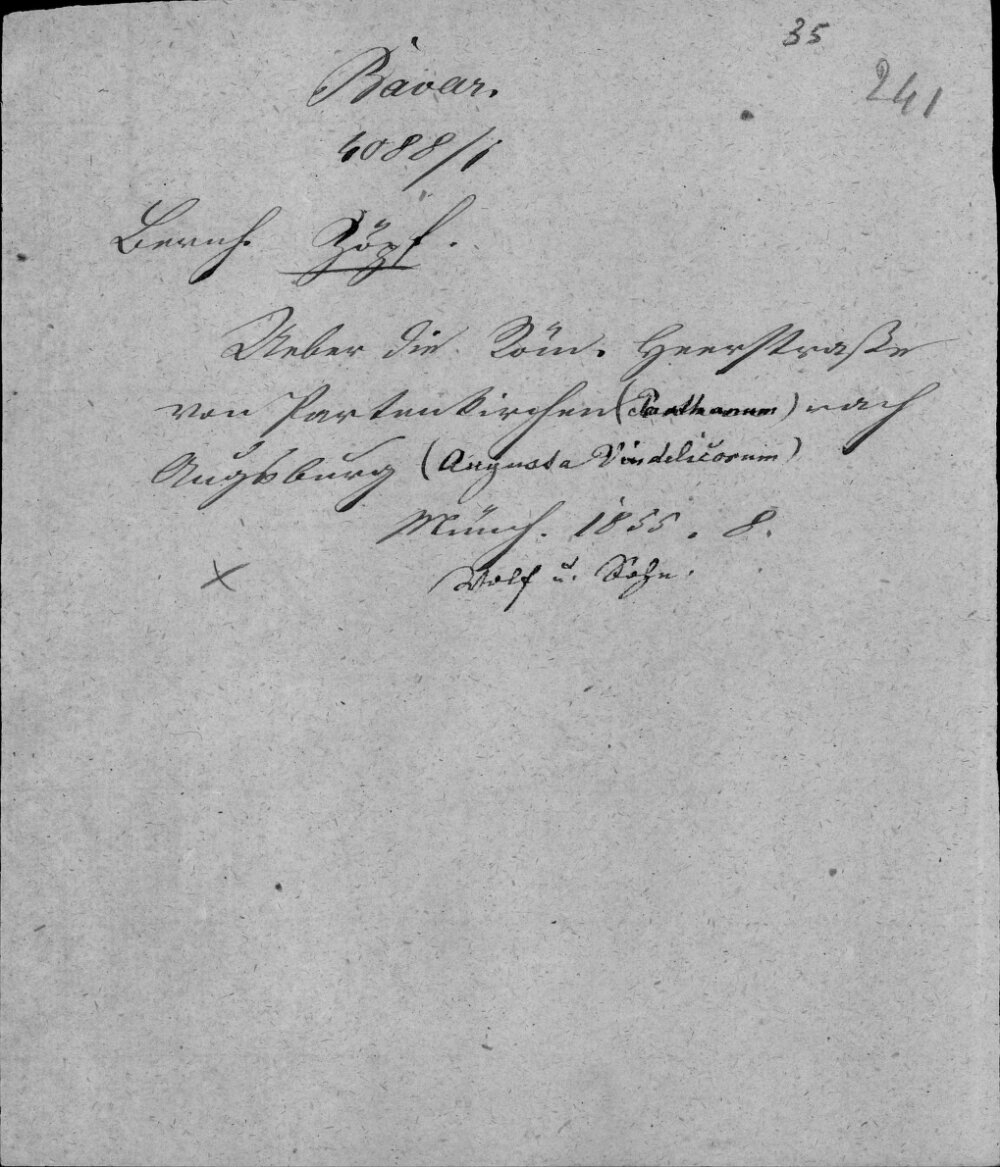 35
241
Bavar.
4088/1
Bernh. Zöpf.
Ueber die Röm. Heerstraße
von Partenkirchen (Parthanum) nach
Augsburg (Augusta Vindelicorum)
Münch. 1855. 8.
Wolf u. Sohn.